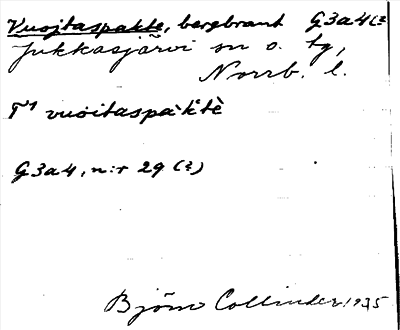 Vuojtaspakte, bergbrant G3a4(?
Jukkasjärvi sn o. tg,
Norrb. l.
T¹ vuoitaspàktè
G3a4, n:r 29 (?)
Björn Collinder 1935